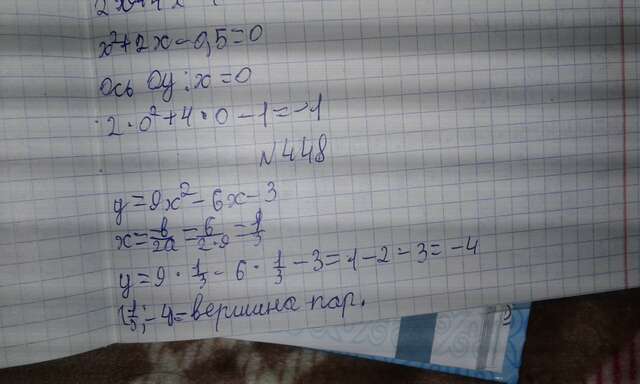 x²+2x-0,5=0
ось Oy: x=0
2·0²+4·0-1=-1
N448
y=9x²-6x-3
x=-b/2a=6/2·9=1/3
y=9·1/3-6·1/3-3=1-2-3=-4
(1/3;-4)=вершина пар.